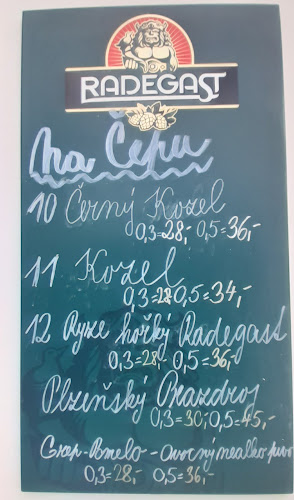 RADEGAST
Na Čepu
10 Černý Kozel
0,3=28,- 0,5=36,-
11 Kozel
0,3=28 0,5=34,-
12 Ryze hořký Radegast
0,3=28,- 0,5=36,-
Plzeňský Prazdroj
0,3=30,- 0,5=45,-
-Pomelo-Ovocný nealko pivo
0,3=28,- 0,5=36,-